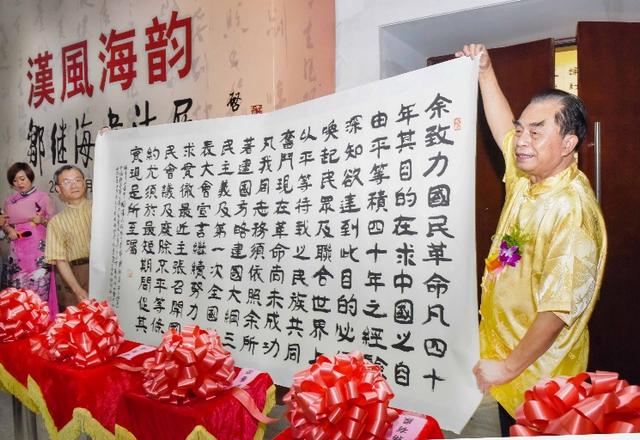 漢風海韵
邹继海书法展
余致力國民革命凡四十
年其目的在求中國之自
由平等積四十年之經驗
深知欲達到此目的必
喚起民眾及聯合世界上
以平等待我之民族共同
奮鬥現在革命尚未成功
凡我同志務須依照余所
著建國方略建國大綱三
民主義及第一次全國
表大會宣言繼續努力
求貫徹最近主張召開國
民會議及廢除不平等條
約尤須於最短期間促其
實現是所至囑